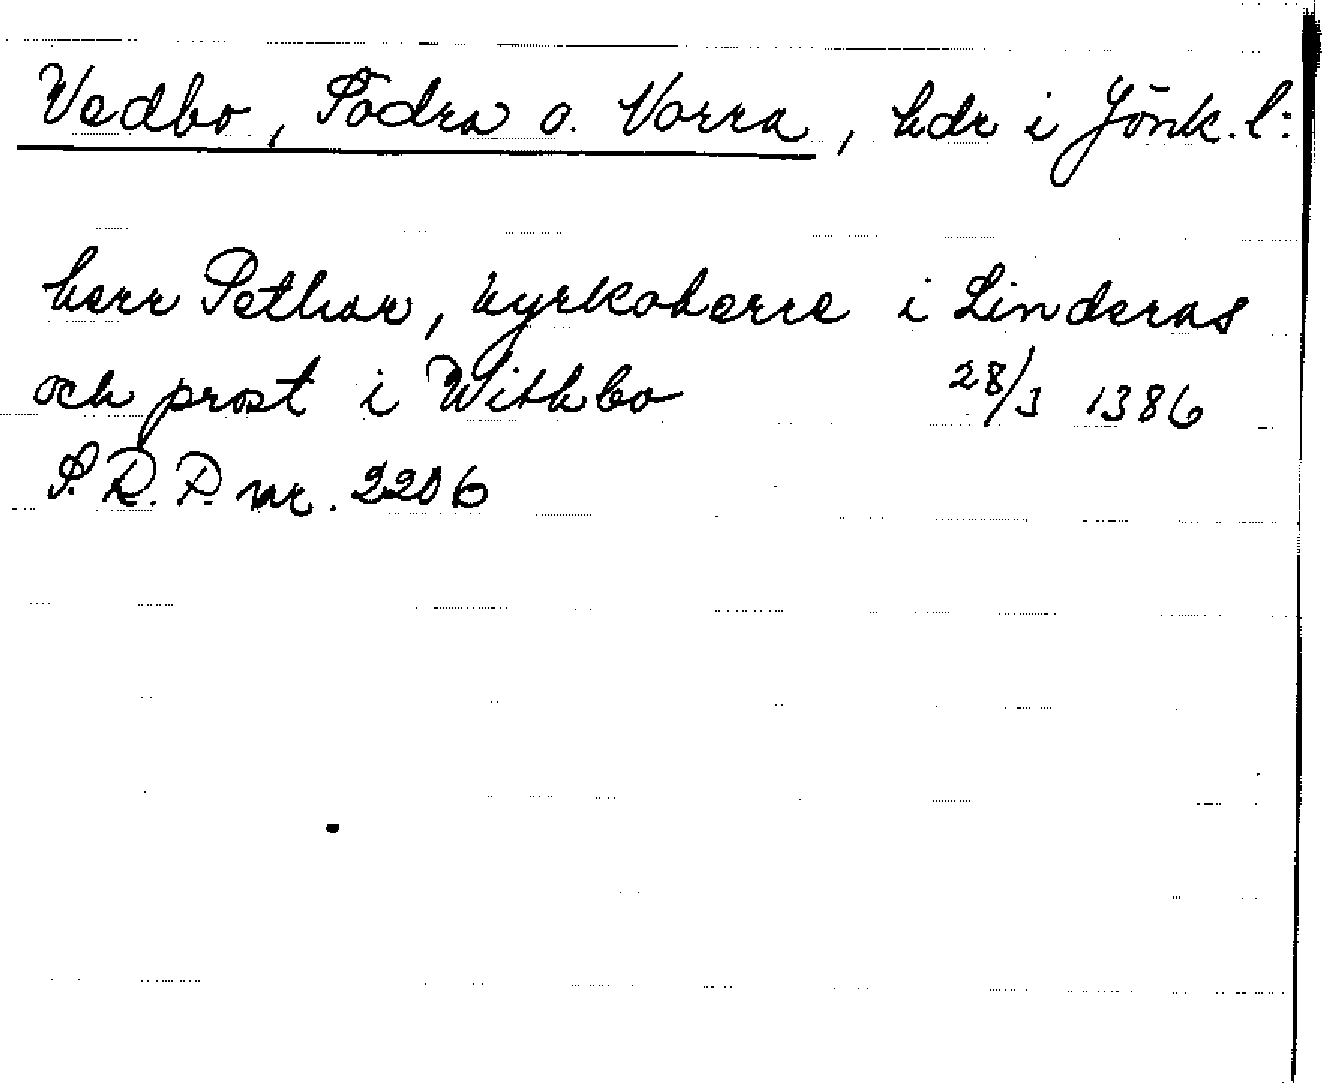 Vedbo, Södra o. Norra, hdr i Jönk. l:
herr Pethar, kyrkoherre i Linderas
och prost i Withbo 28/3 1386
S. R. P. nr. 2206